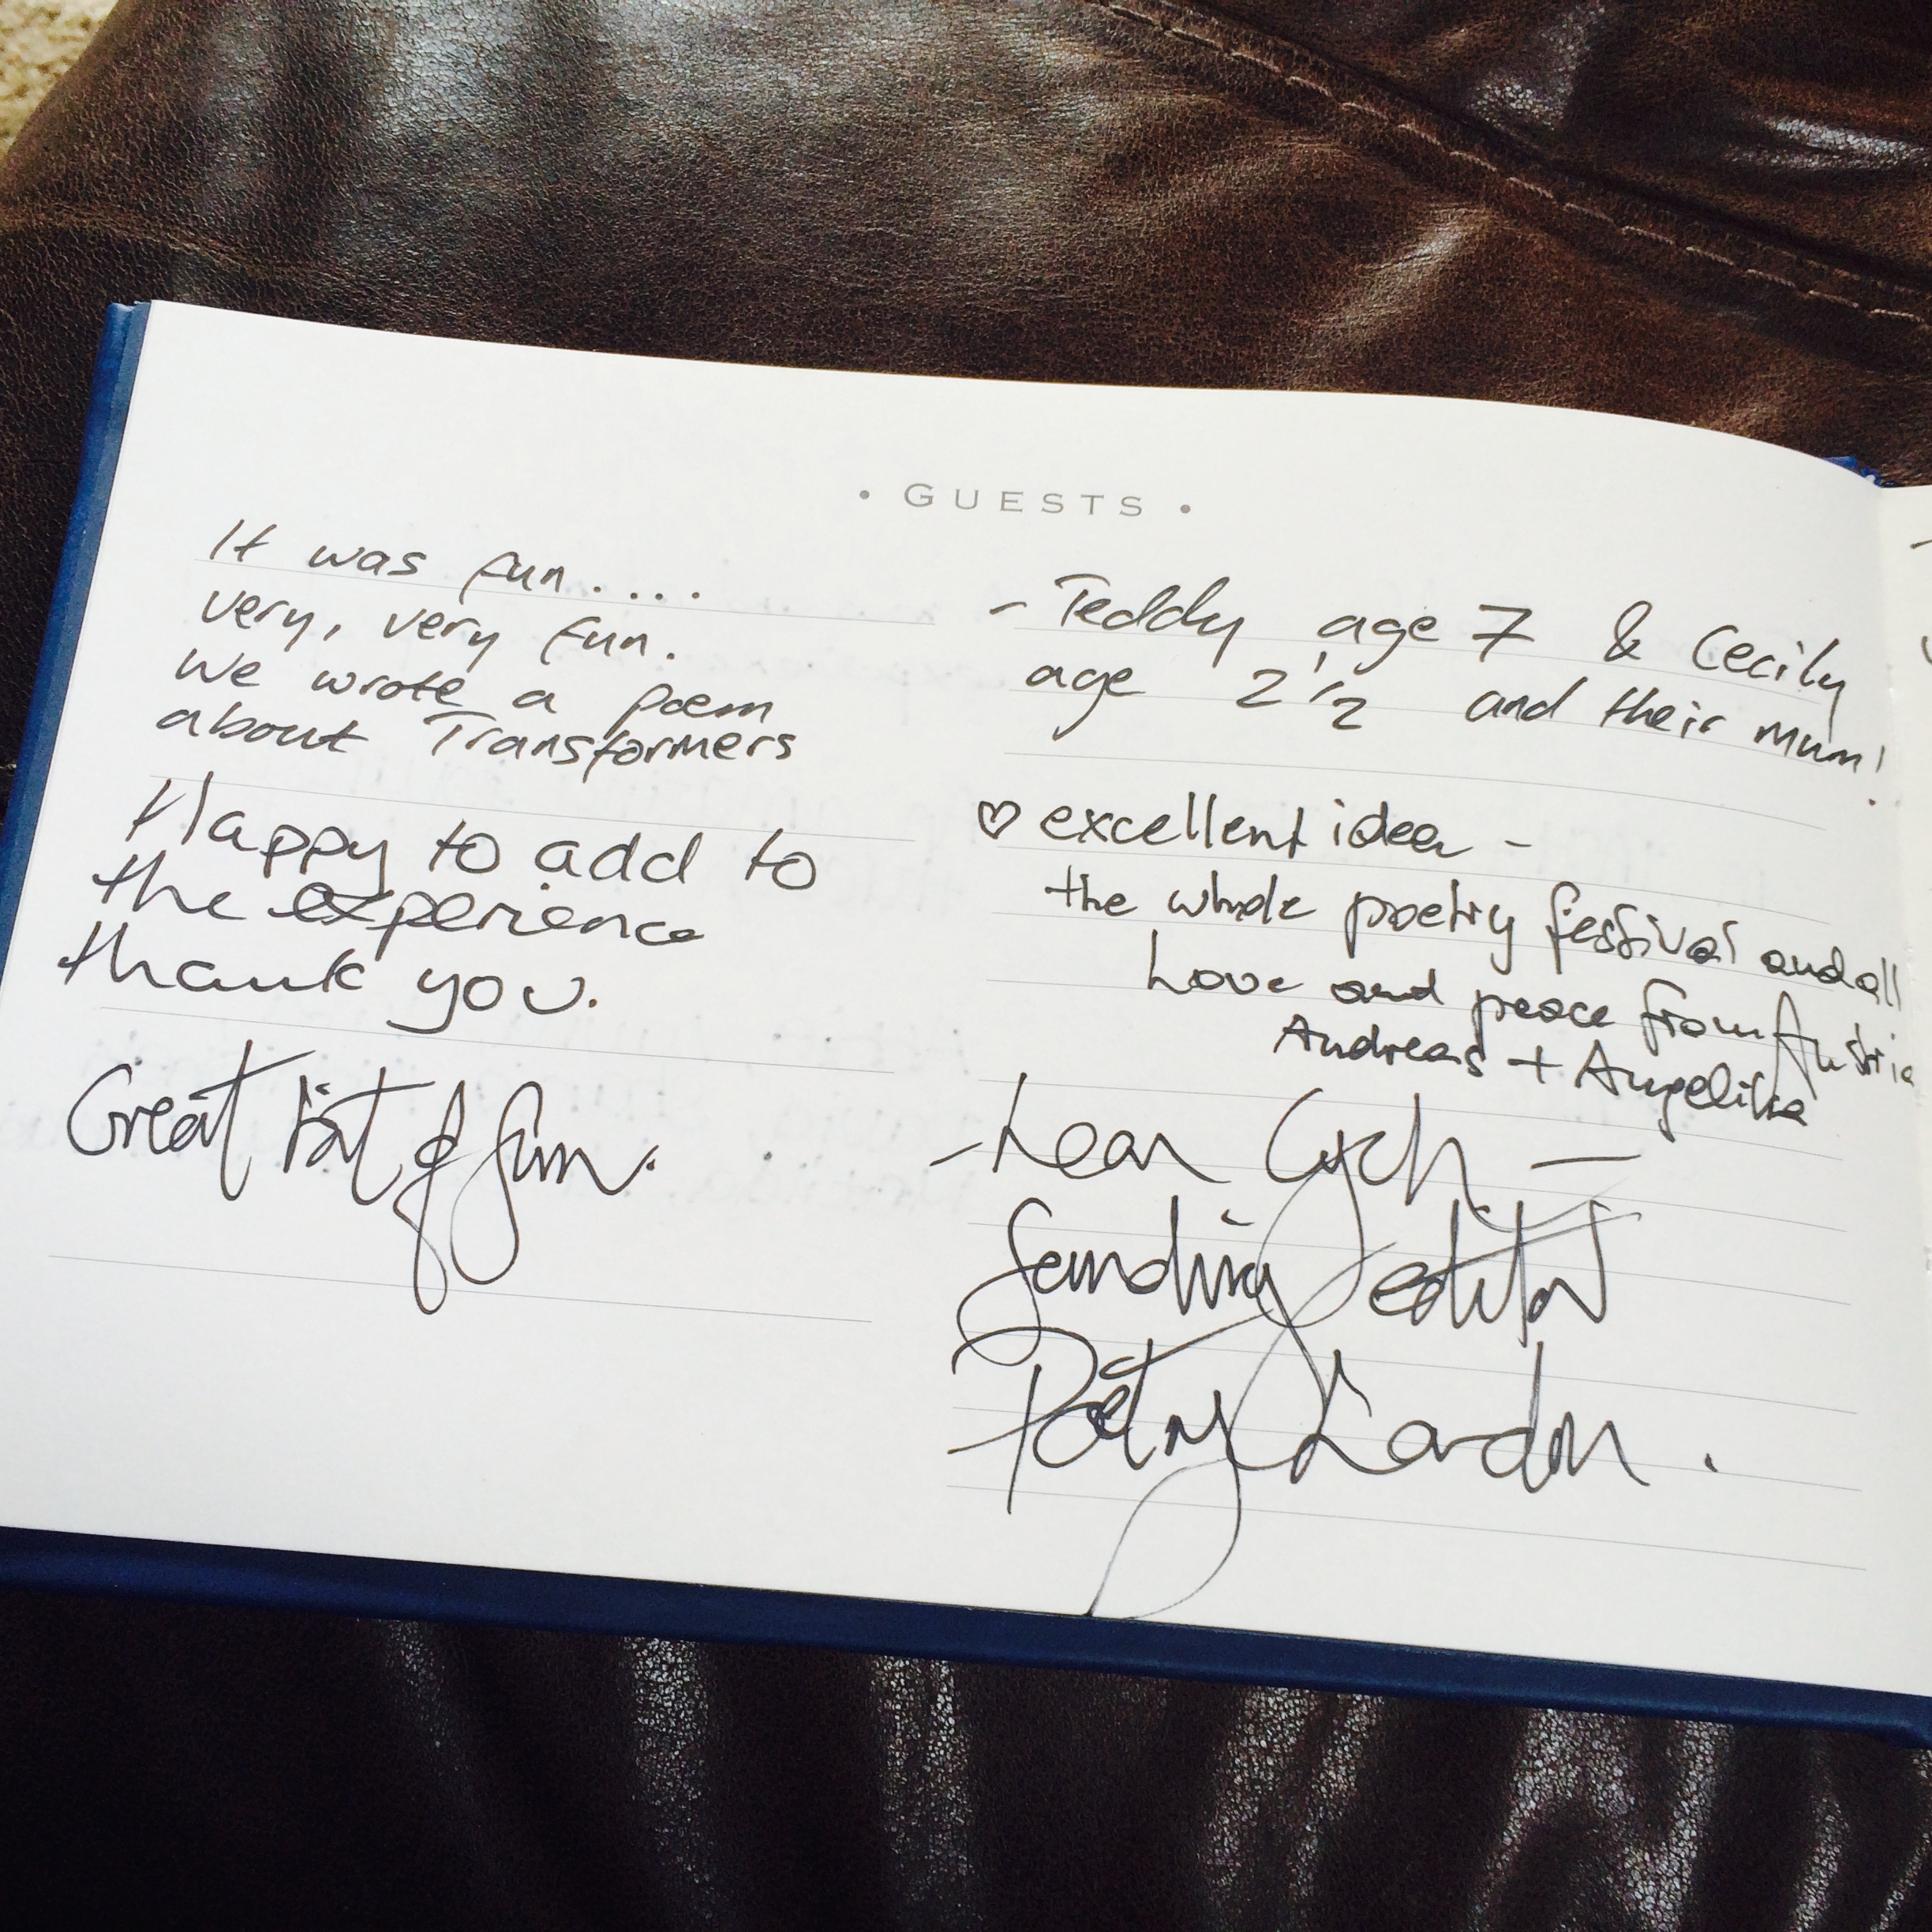 • GUESTS •
It was fun....
very, very fun.
We wrote a poem
about Transformers
Happy to add to
the experience
thank you.
Great bit of fun.
- Teddy, age 7 & Cecily
age 2 1/2 and their mum!
♡ excellent idea -
the whole poetry festival and all
Love and peace from Austria
Andreas + Angelika
Founding editor
Poetry London.